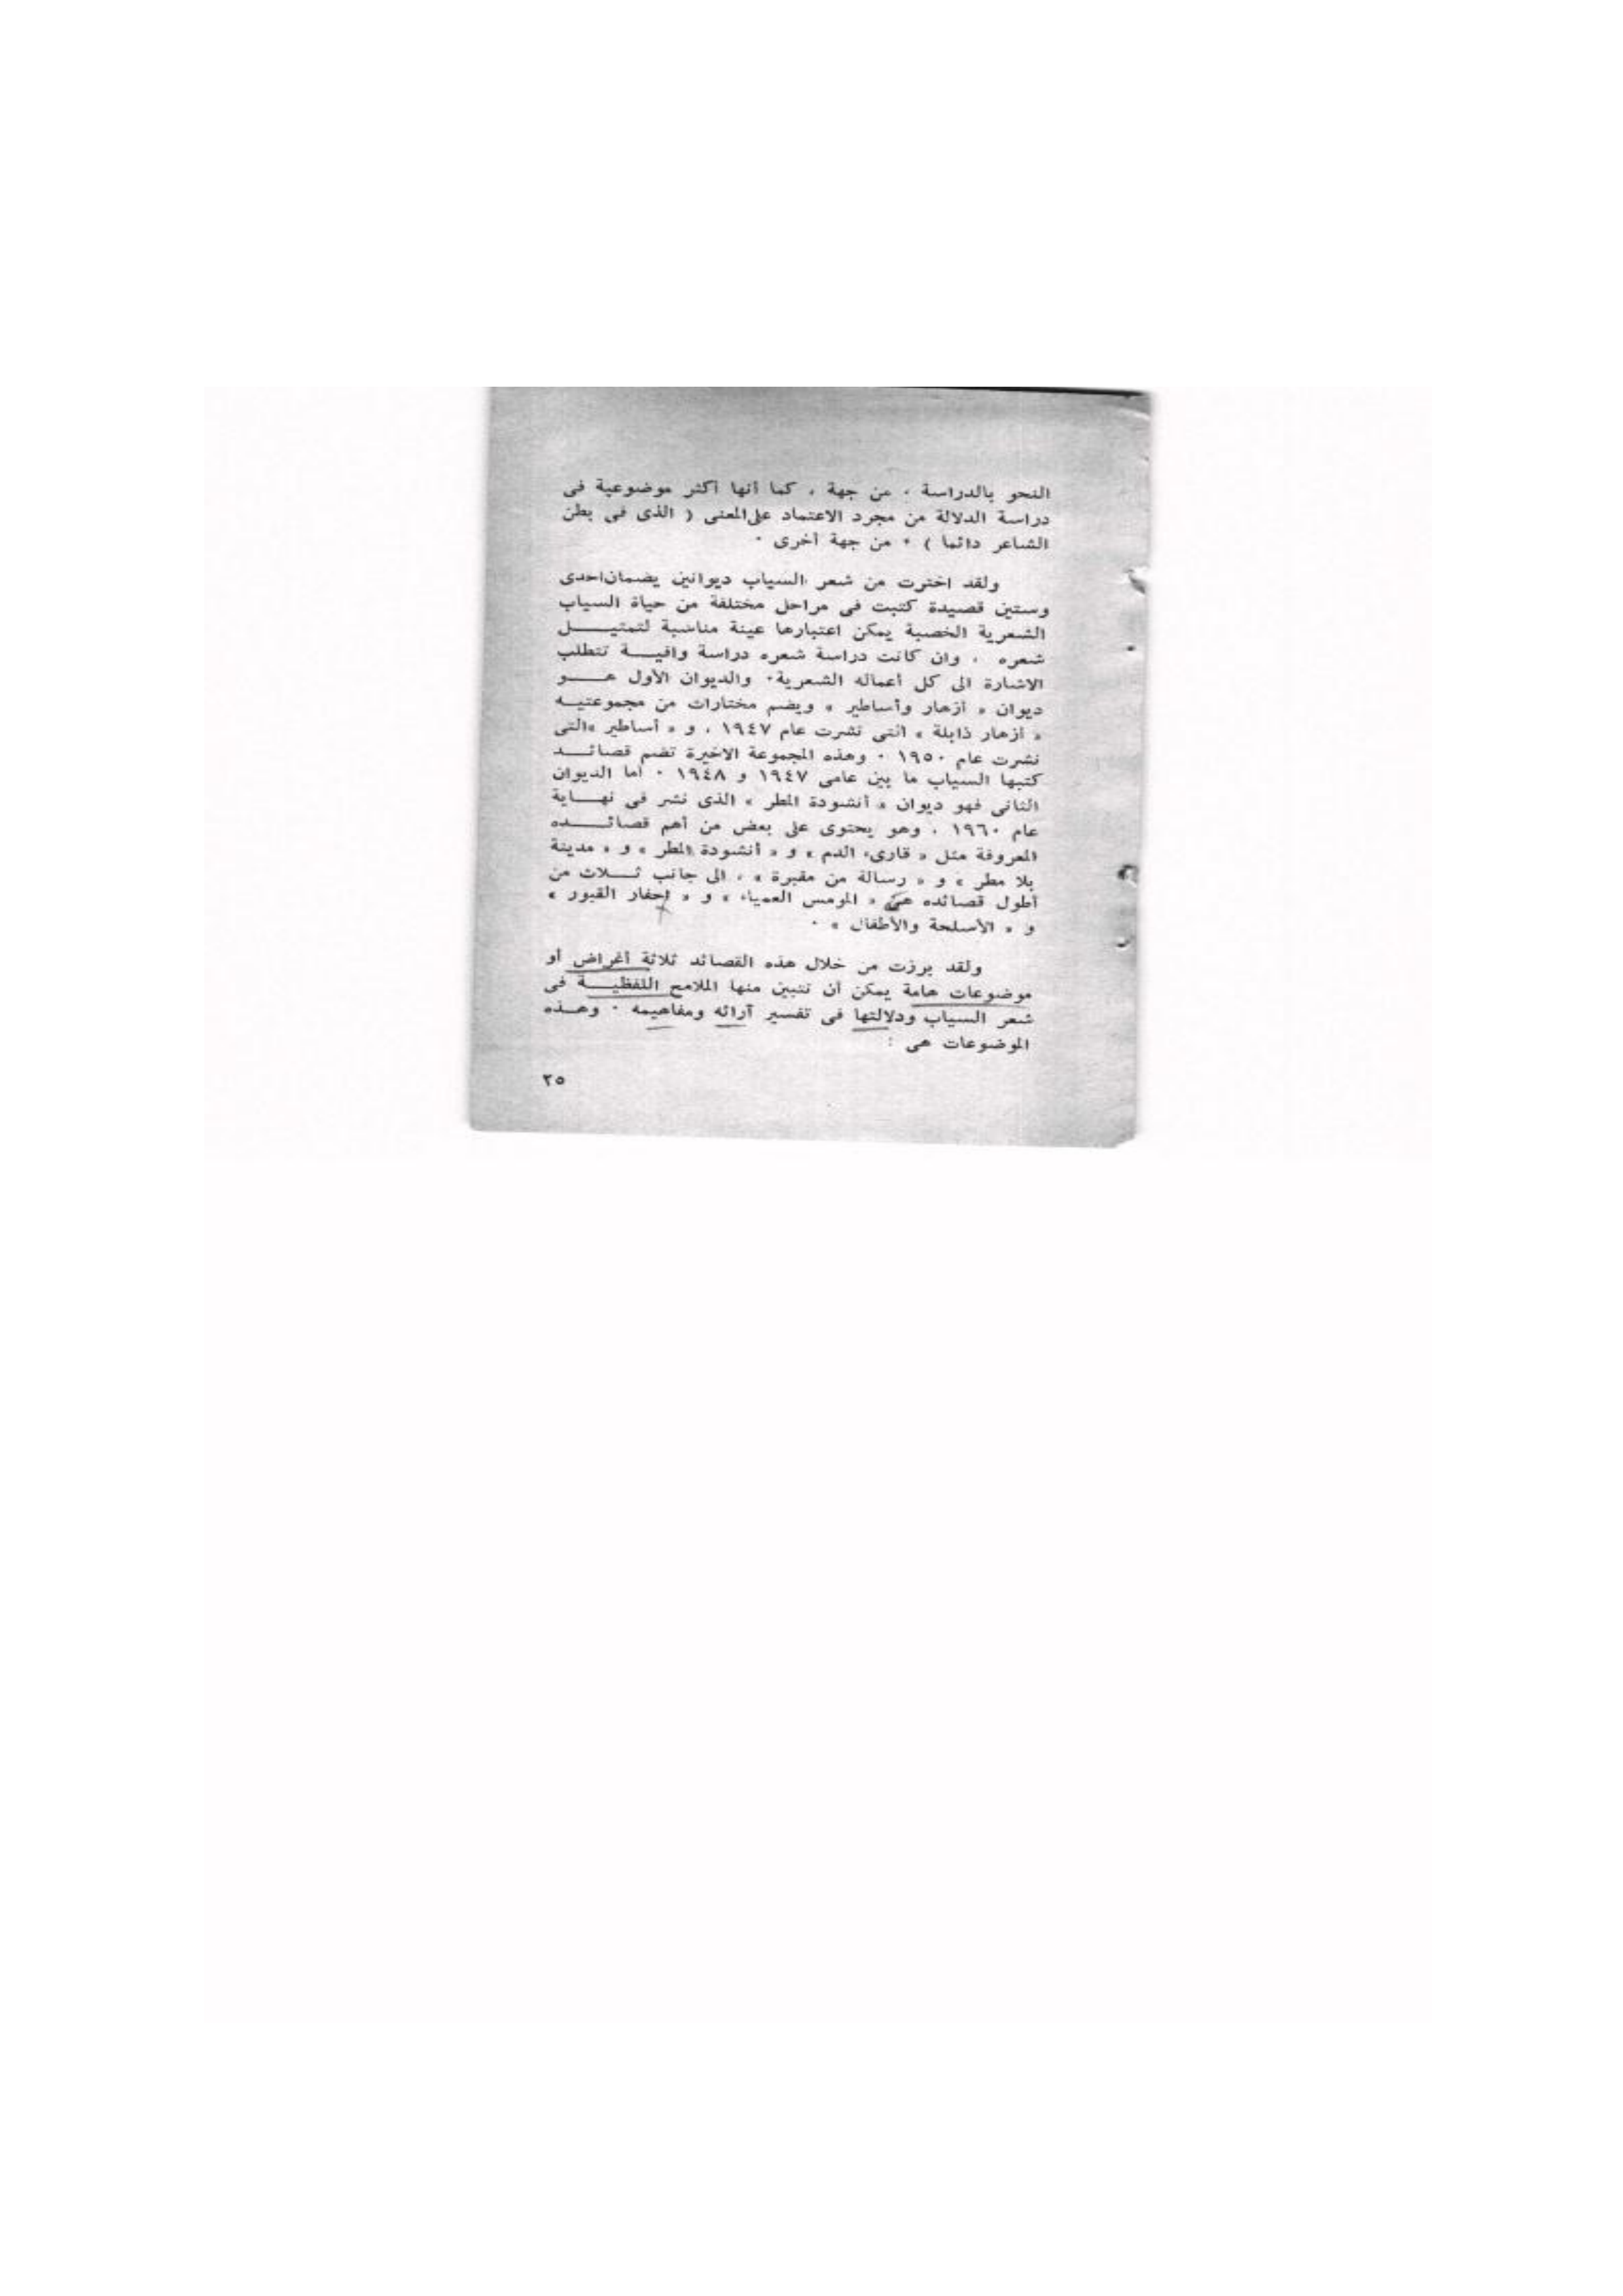 النحو بالدراسة ، من جهة ، كما أنها أكثر موضوعية فى
دراسة الدلالة من مجرد الاعتماد على المعنى ( الذى فى بطن
الشاعر دائما ) ، من جهة أخرى ٠
ولقد اخترت من شعر السياب ديوانين يضمان احدى
وستين قصيدة كتبت فى مراحل مختلفة من حياة السياب
الشعرية الخصبة يمكن اعتبارها عينة مناسبة لتمثيـــل
شعره ، وان كانت دراسة شعره دراسة وافيـــة تتطلب
الاشارة الى كل أعماله الشعرية٠ والديوان الأول هـــو
ديوان « أزهار وأساطير » ويضم مختارات من مجموعتيـه
« أزهار ذابلة » التى نشرت عام ١٩٤٧ ، و « أساطير »التى
نشرت عام ١٩٥٠ ٠ وهذه المجموعة الاخيرة تضم قصائـــد
كتبها السياب ما بين عامى ١٩٤٧ و ١٩٤٨ ٠ أما الديوان
الثانى فهو ديوان « أنشودة المطر » الذى نشر فى نهـــاية
عام ١٩٦٠ ، وهو يحتوى على بعض من أهم قصائـــده
المعروفة مثل « قارىء الدم » و « أنشودة المطر » و « مدينة
بلا مطر » و « رسالة من مقبرة » ، الى جانب ثـــلاث من
أطول قصائده هى « المومس العمياء » و « حفار القبور »
و « الأسلحة والأطفال » ٠
ولقد برزت من خلال هذه القصائد ثلاثة أغراض أو
موضوعات هامة يمكن أن نتبين منها الملامح اللفظيـــة فى
شعر السياب ودلالتها فى تفسير آرائه ومفاهيمه ٠ وهـــذه
الموضوعات هى :
٢٥